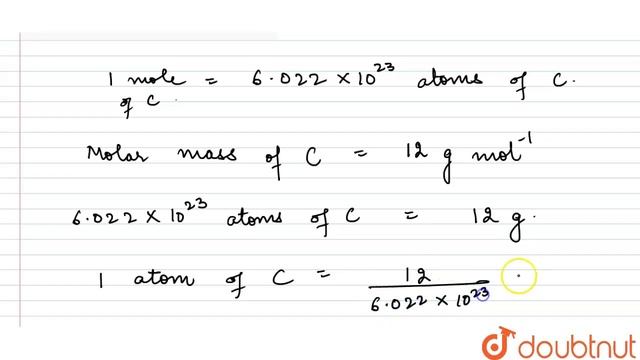 1 mole = 6.022 × 10²³ atoms of C.
of C.
Molar mass of C = 12 g mol⁻¹
6.022 × 10²³ atoms of C = 12 g.
1 atom of C = 12
6.022 × 10²³
doubtnut